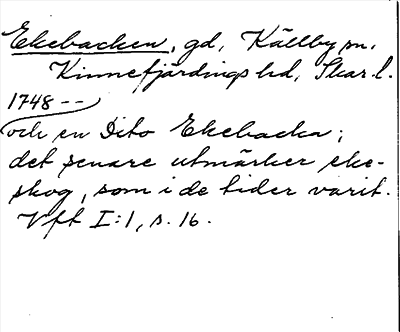 Ekebacken, gd, Källby sn,
Kinnefjärdings hd, Skar. l.
1748 --
och en Dito Ekebacka;
det senare utmärker eke-
skog, som i de tider varit.
Vft I:1, s. 16.